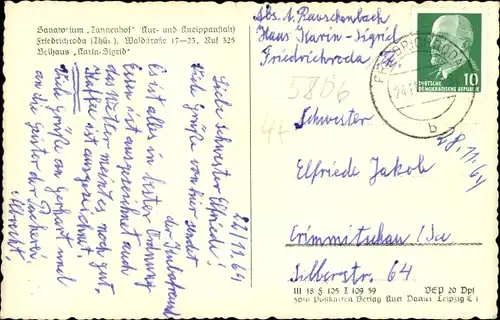 Sanatorium "Tannenhof" (Kur- und Kneippanstalt)
Friedrichroda (Thür.), Waldstraße 17—25, Ruf 325
Betthaus „Karin-Sigrid"
22/11.64
Liebe Schwester Elfriede!
Viele Grüße von hier sendet
Es ist alles in bester Ordnung
Essen ist ausgezeichnet auch
das Wetter meint es noch gut.
Kaffee ist ausgezeichnet.
Viele Grüße an Gerhard und
an die Geister der
Abs. A. Rauschenbach
Haus Karin-Sigrid
Friedrichroda Th.
FRIEDRICHRODA
24.11
b
DEUTSCHE
DEMOKRATISCHE REPUBLIK
10
5806
44
Schwester
Elfriede Jakob
28.11.64
Crimmitschau/Sa
Silberstr. 64
III 18 5 105 I 109 59
EVP 20 Dpf
Foto Postkarten Verlag Kurt Daniel Leipzig C 1